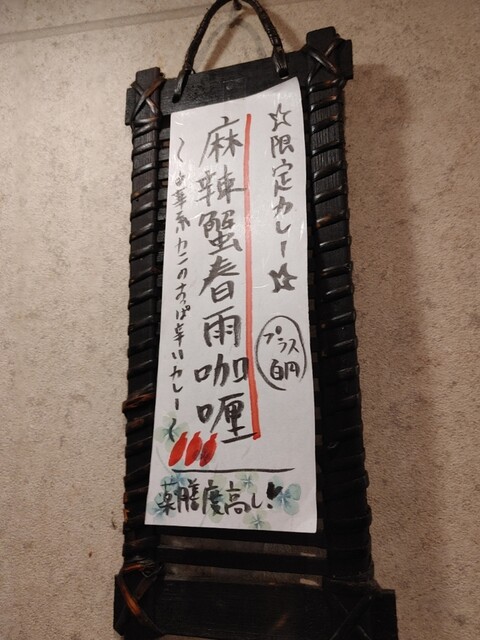 ☆限定カレー☆
プラス
百円
麻辣蟹春雨咖喱
〜中華系カニのすっぱ辛いカレー〜
薬膳度高し!!